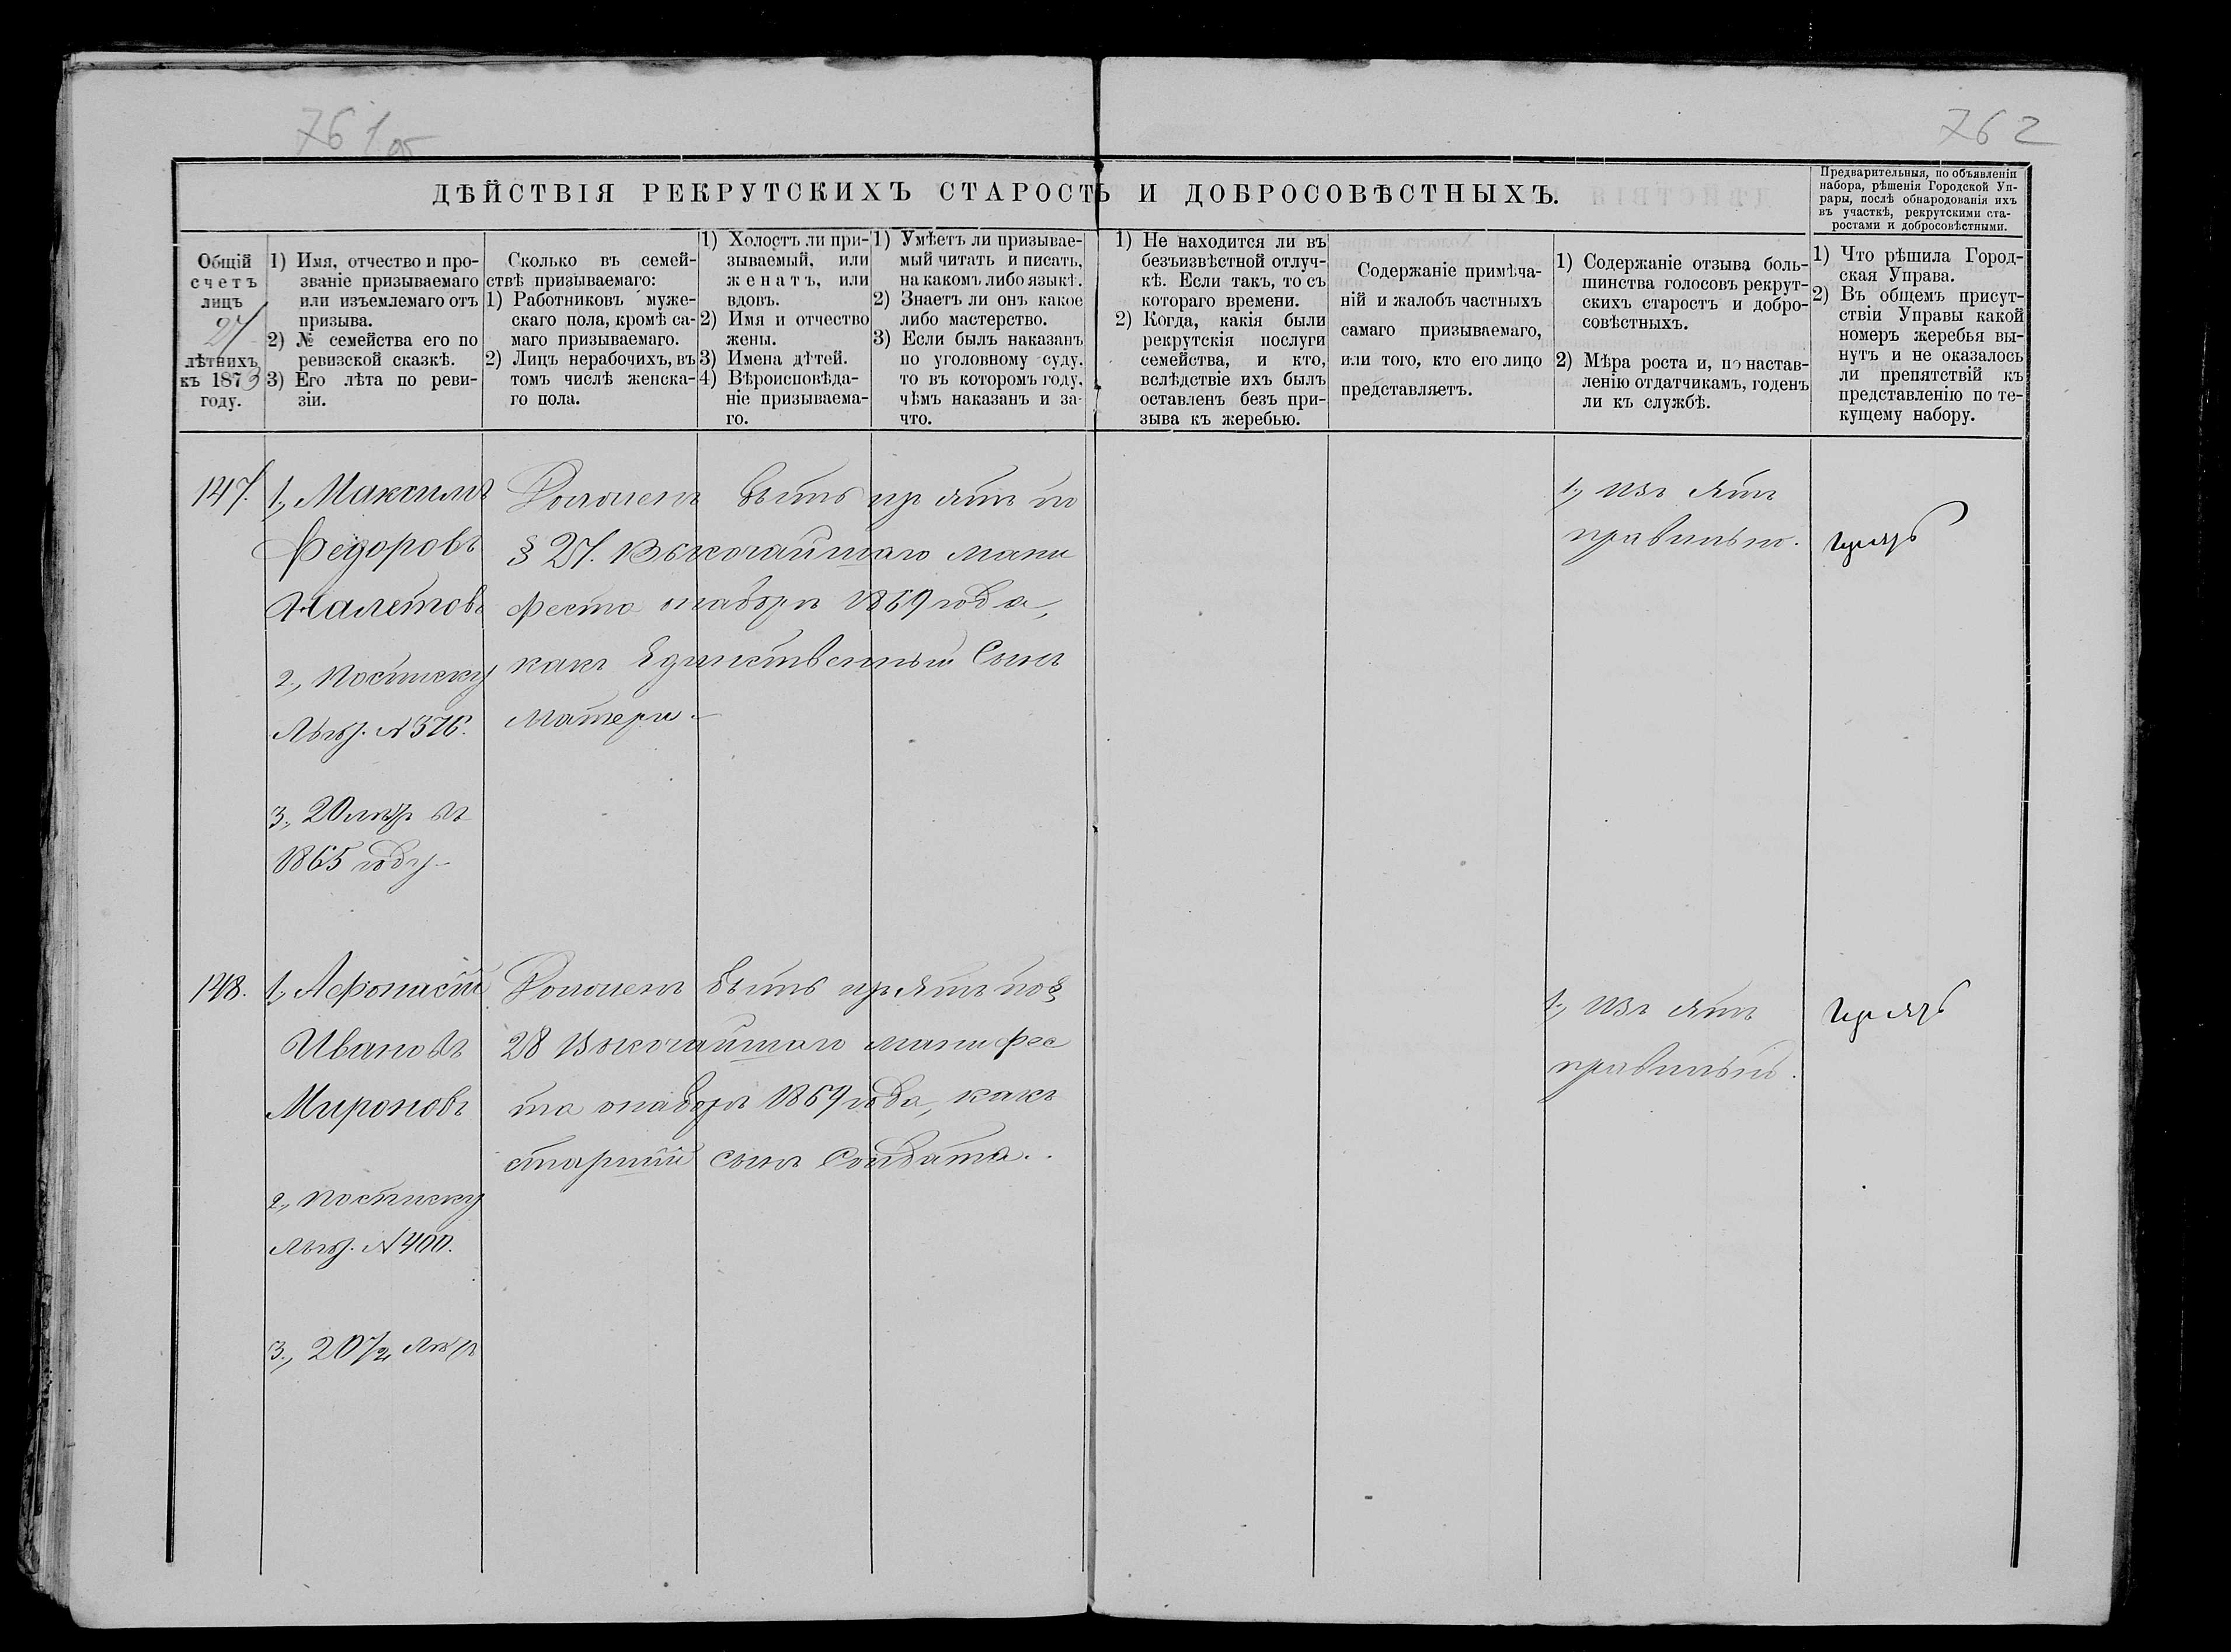 761 об
762
ДѢЙСТВІЯ РЕКРУТСКИХЪ СТАРОСТЪ И ДОБРОСОВѢСТНЫХЪ.
Предварительныя, по объявленіи
набора, рѣшенія Городской Уп-
равы, послѣ обнародованія ихъ
въ участкѣ, рекрутскими ста-
ростами и добросовѣстными.
Общій
счетъ
лицъ
27
лѣтнихъ
къ 1873
году.
1) Имя, отчество и про-
званіе призываемаго
или изъемлемаго отъ
призыва.
2) № семейства его по
ревизской сказкѣ.
3) Его лѣта по реви-
зіи.
Сколько въ семей-
ствѣ призываемаго:
1) Работниковъ муже-
скаго пола, кромѣ са-
маго призываемаго.
2) Лицъ нерабочихъ, въ
томъ числѣ женска-
го пола.
1) Холостъ ли при-
зываемый, или
женатъ, или
вдовъ.
2) Имя и отчество
жены.
3) Имена дѣтей.
4) Вѣроисповѣда-
ніе призываема-
го.
1) Умѣетъ ли призывае-
мый читать и писать,
на какомъ либо языкѣ.
2) Знаетъ ли онъ какое
либо мастерство.
3) Если былъ наказанъ
по уголовному суду,
то въ которомъ году,
чѣмъ наказанъ и за-
что.
1) Не находится ли въ
безъизвѣстной отлуч-
кѣ. Если такъ, то съ
котораго времени.
2) Когда, какія были
рекрутскія послуги
семейства, и кто,
вслѣдствіе ихъ былъ
оставленъ безъ при-
зыва къ жеребью.
Содержаніе примѣча-
ній и жалобъ частныхъ
самаго призываемаго,
или того, кто его лицо
представляетъ.
1) Содержаніе отзыва боль-
шинства голосовъ рекрут-
скихъ старостъ и добро-
совѣстныхъ.
2) Мѣра роста и, по настав-
ленію отдатчикамъ, годенъ
ли къ службѣ.
1) Что рѣшила Город-
ская Управа.
2) Въ общемъ присут-
ствіи Управы какой
номеръ жеребья вы-
нутъ и не оказалось
ли препятствій къ
представленію по те-
кущему набору.
147. 1, Максимъ
Федоровъ
Налетовъ
2, По списку
льгот. № 376.
3, 20 лѣтъ въ
1865 году
быть по
§ 27. Высочайшаго мани
феста о наборѣ 1869 года,
какъ Единственный Сынъ
Матери.
1, Изъятъ
правильно.
148. 1, Афонасій
Ивановъ
Мироновъ
2, По списку
льгот. № 400.
3, 20 1/2 лѣтъ
быть по §
28 Высочайшаго манифес
та о наборѣ 1869 года, какъ
старшій сынъ Солдата.
1, Изъятъ
правильно.